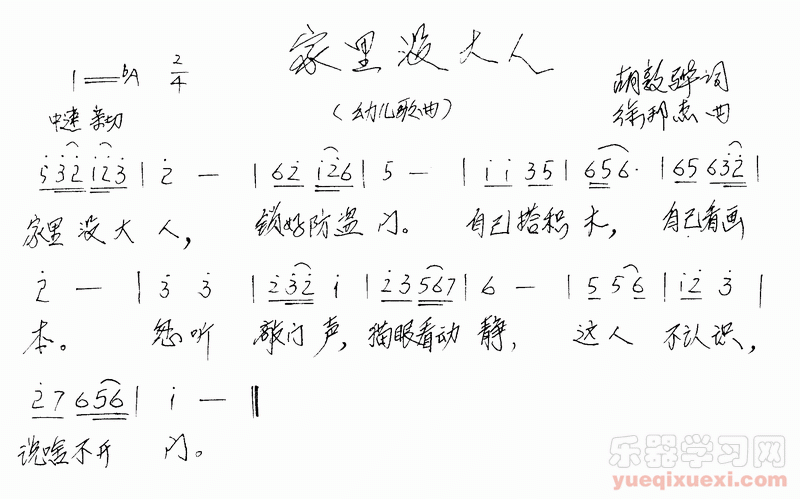 家里没大人
1=bA 2/4
(幼儿歌曲)
胡敦骅词
中速 亲切
徐邦杰曲
5 3 2 1 2 3 | 2 — | 6 2 1 2 6 | 5 — | 1 1 3 5 | 6 5 6 · | 6 5 6 3 2 |
家里没大人, 锁好防盗门。 自己搭积木, 自己看画
2 — | 3 3 | 2 3 2 1 | 2 3 5 6 7 | 6 — | 5 5 6 | 1 2 3 |
本。 忽听 敲门声, 猫眼看动静, 这人不认识,
2 7 6 5 6 | 1 — ‖
说啥不开门。
乐器学习网
yueqixuexi.com